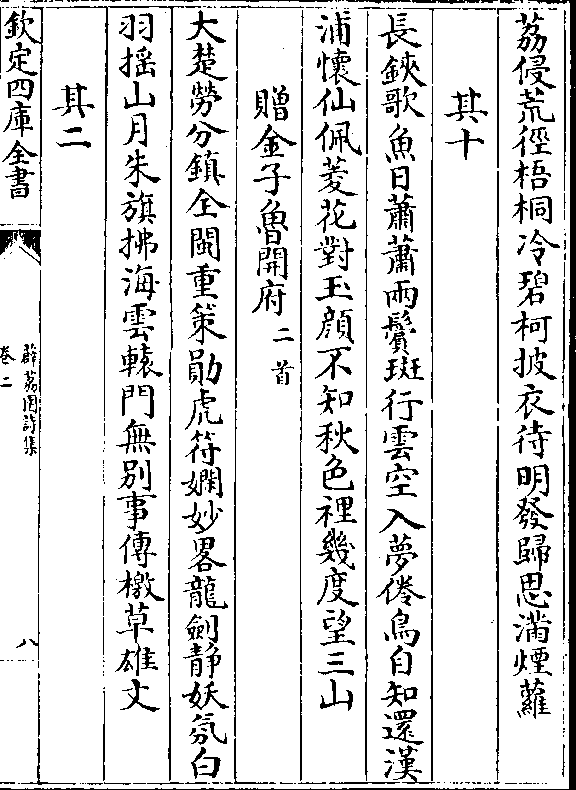 荔侵荒徑梧桐冷碧柯披衣待明發歸思滿煙蘿
其十
長鋏歌魚日蕭蕭兩鬢斑行雲空入夢倦鳥自知還漢
浦懷仙佩菱花對玉顔不知秋色裡幾度望三山
贈金子魯開府二首
大楚勞分鎮全閩重策勛虎符嫻妙畧龍劍靜妖氛白
羽揺山月朱旗拂海雲轅門無别事傳檄草雄文
其二
欽定四庫全書
薜荔園詩集
卷二
八